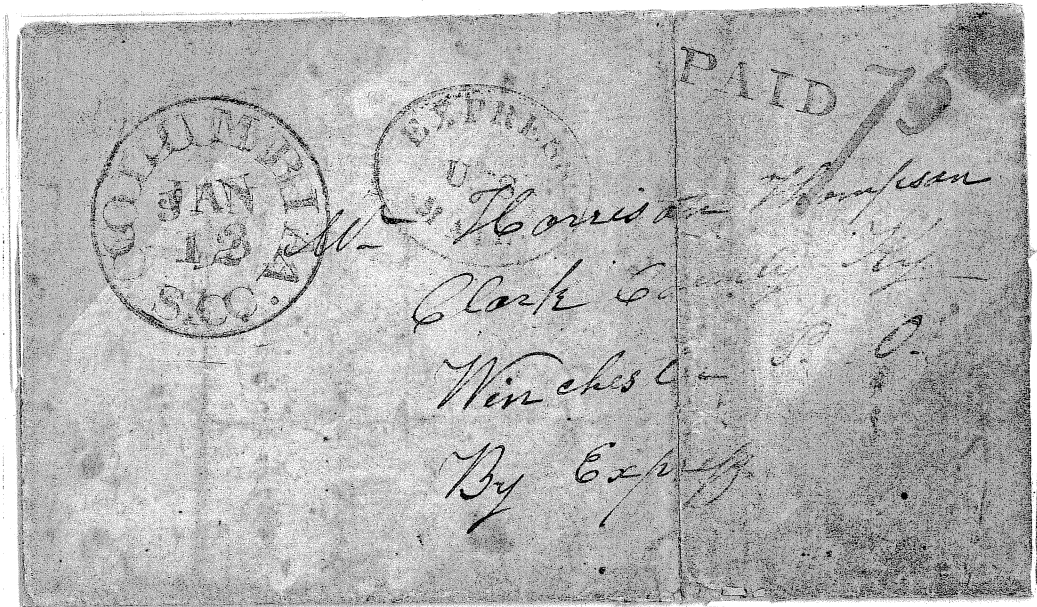 COLUMBIA
JAN
13
S.C.
EXPRESS
U S
MAIL
PAID 75
Mr Harrison Thompson
Clark County Ky
Winchester P. O.
By Express